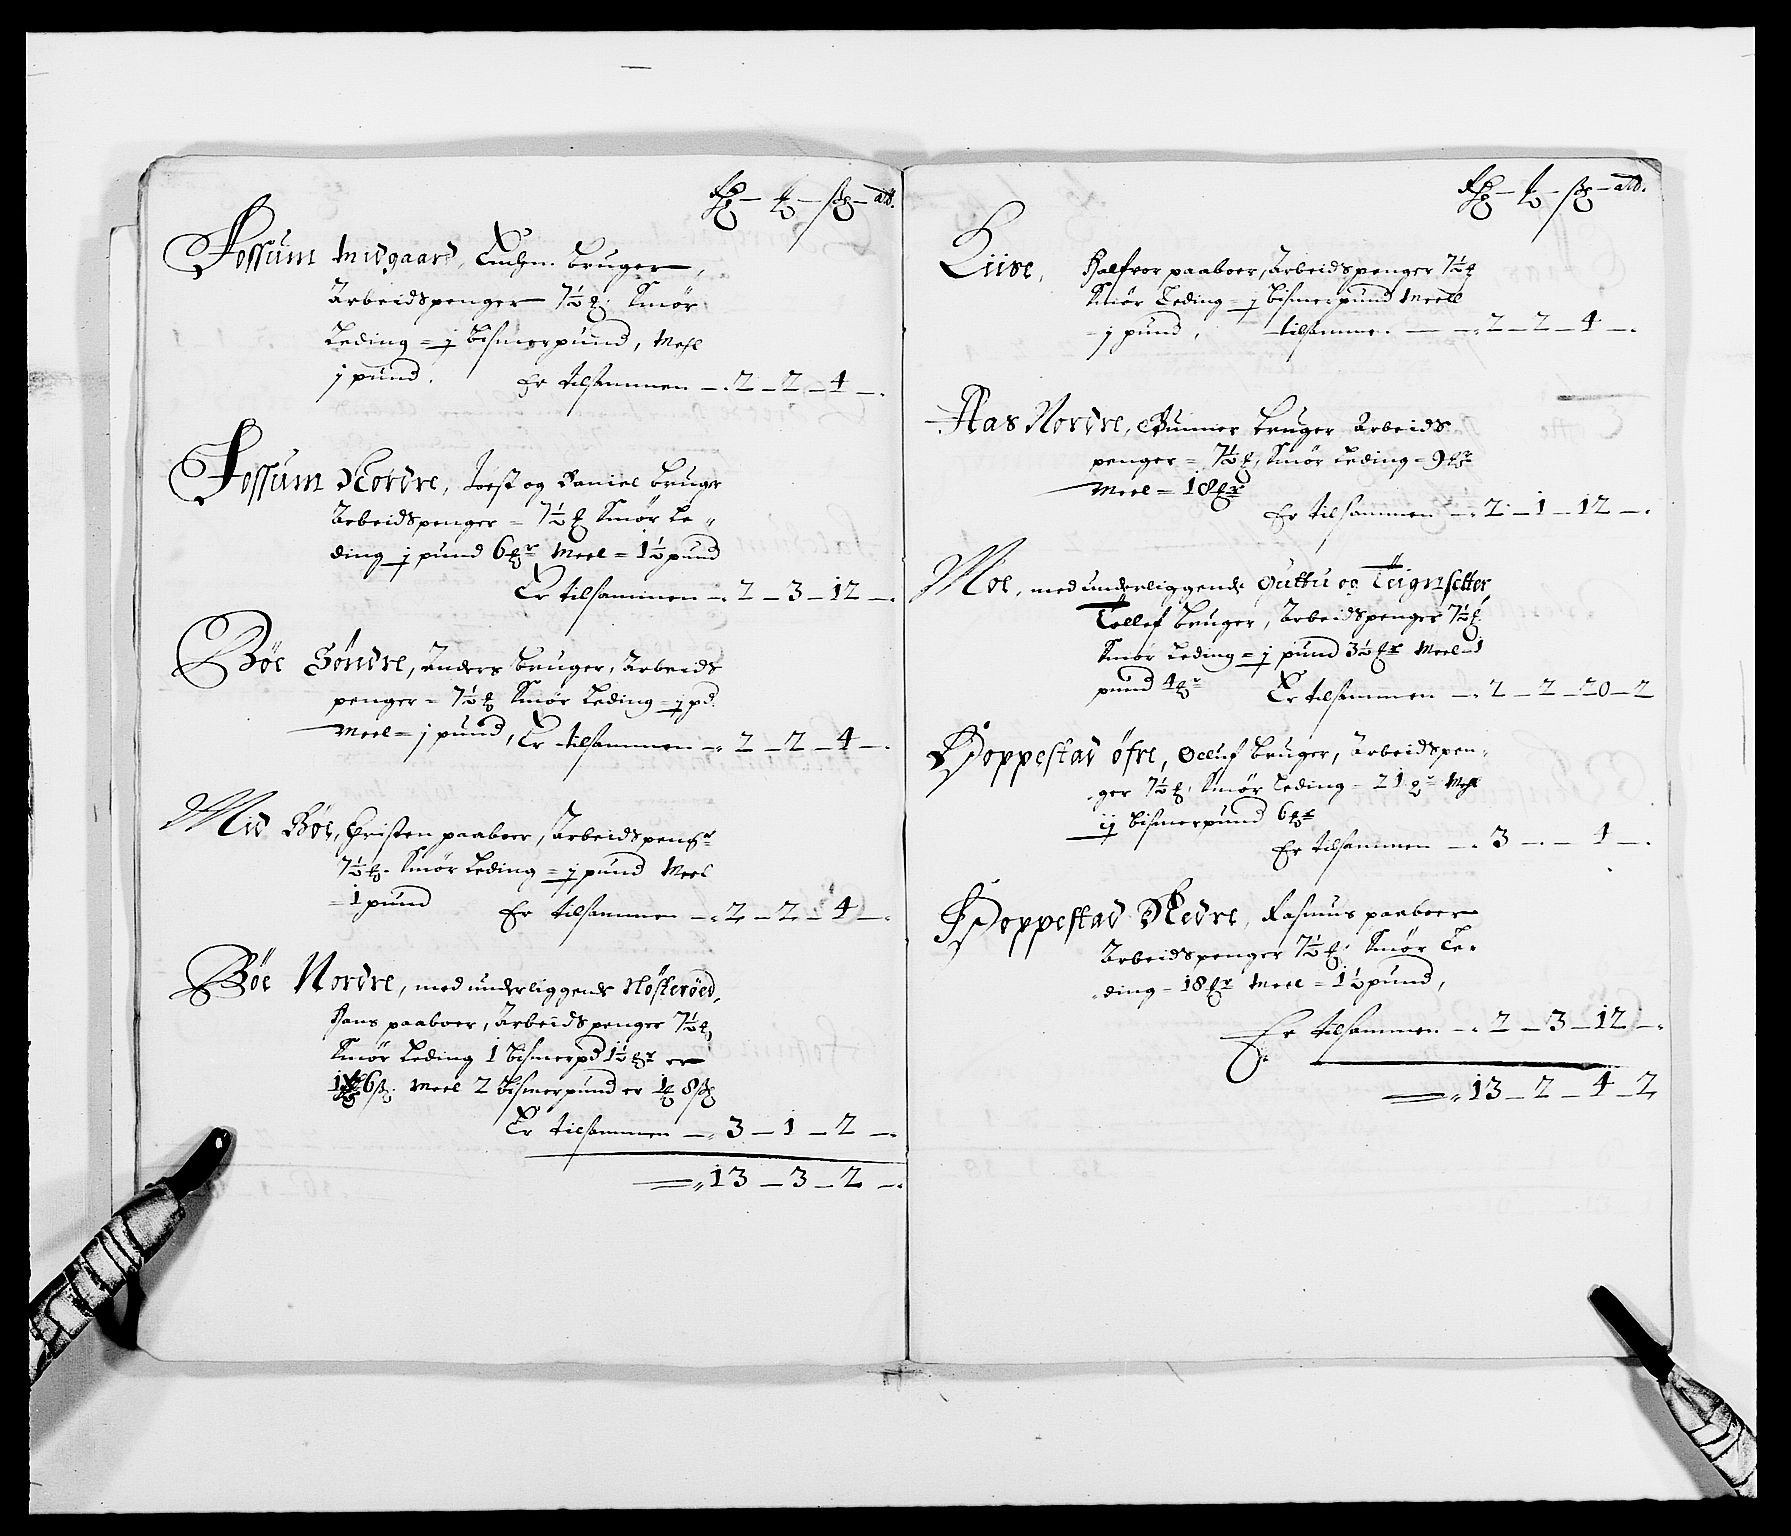 Rd — ort — sk — alb.
Fossum Midgaard, bruger,
Arbeidspenger 7½ ort. Smør
Leding = j bismerpund, Mehl
j pund. Er tilsammen — 2 — 2 — 4 —
Fossum Nordre, Joest og Daniel bruger
Arbeidspenger = 7½ ort Smør Le-
ding j pund 6 mkr Meel = 1½ pund
Er tilsammen — 2 — 3 — 12 —
Böe Söndre, Anders bruger, Arbeids
penger = 7½ ort Smør Leding = j pd.
Meel = j pund, Er tilsammen — 2 — 2 — 4 —
Mid Böe, Christen paaboer, Arbeidspengr
7½ ort. Smør Leding = j pund Meel
= 1 pund Er tilsammen — 2 — 2 — 4 —
Böe Nordre, med underliggende Nösteröed,
Hans paaboer, Arbeidspenger 7½ ort
Smør Leding 1 bismerpd 1½ mkr er
6 sk. Meel 2 bismerpund er 1 ort 8 sk
Er tilsammen — 3 — 1 — 2 —
= 13 — 3 — 2 —
Rd — ort — sk — alb.
Liise, Halfvor paaboer, Arbeidspenger 7½ ort
Smør Leding = j bismerpund Meell
= j pund, tilsamme. — 2 — 2 — 4 —
Aas Nordre, Gunner bruger Arbeids
penger = 7½ ort, Smør Leding = 9 mkr
Meel = 18 mkr
Er tilsammen — 2 — 1 — 12 —
Moe, med underliggende Guttu og Teignsetter,
Tollef bruger, Arbeidspenger 7½ ort.
Smør Leding = j pund 3½ mkr Meel = 1
pund 4 mkr Er tilsammen — 2 — 2 — 20 — 2
Hoppestad øfre, Oeluf bruger, Arbeidspen-
ger 7½ ort, Smør Leding = 21 mkr Mehl
ij bismerpund 6 mkr
Er tilsammen — 3 — — 4 —
Hoppestad Nedre, Rasmus paaboer
Arbeidspenger 7½ ort. Smør Le-
ding = 18 mkr Meel = 1½ pund,
Er tilsammen — 2 — 3 — 12 —
= 13 — 2 — 4 — 2